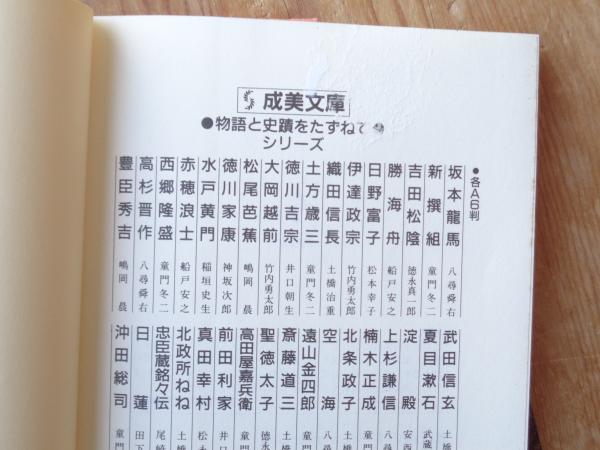 成美文庫
●物語と史蹟をたずねて
シリーズ
●各A6判
坂本龍馬 八尋舜右
新撰組 童門冬二
吉田松陰 徳永真一郎
勝海舟 船戸安之
日野富子 松本幸子
伊達政宗 竹内勇太郎
織田信長 土橋治重
土方歳三 童門冬二
徳川吉宗 井口朝生
大岡越前 竹内勇太郎
松尾芭蕉 嶋岡晨
徳川家康 神坂次郎
水戸黄門 稲垣史生
赤穂浪士 船戸安之
西郷隆盛 童門冬二
高杉晋作 八尋舜右
豊臣秀吉 嶋岡晨
武田信玄 土橋
夏目漱石 武蔵
淀殿 安西
上杉謙信 井口
楠木正成 童門
北条政子 土橋
空海 八尋
遠山金四郎 童門
斎藤道三 土橋
聖徳太子 徳永
高田屋嘉兵衛 童門
前田利家 井口
真田幸村 松
北政所ねね 土橋
忠臣蔵銘々伝 尾崎
日蓮 田下
沖田総司 童門